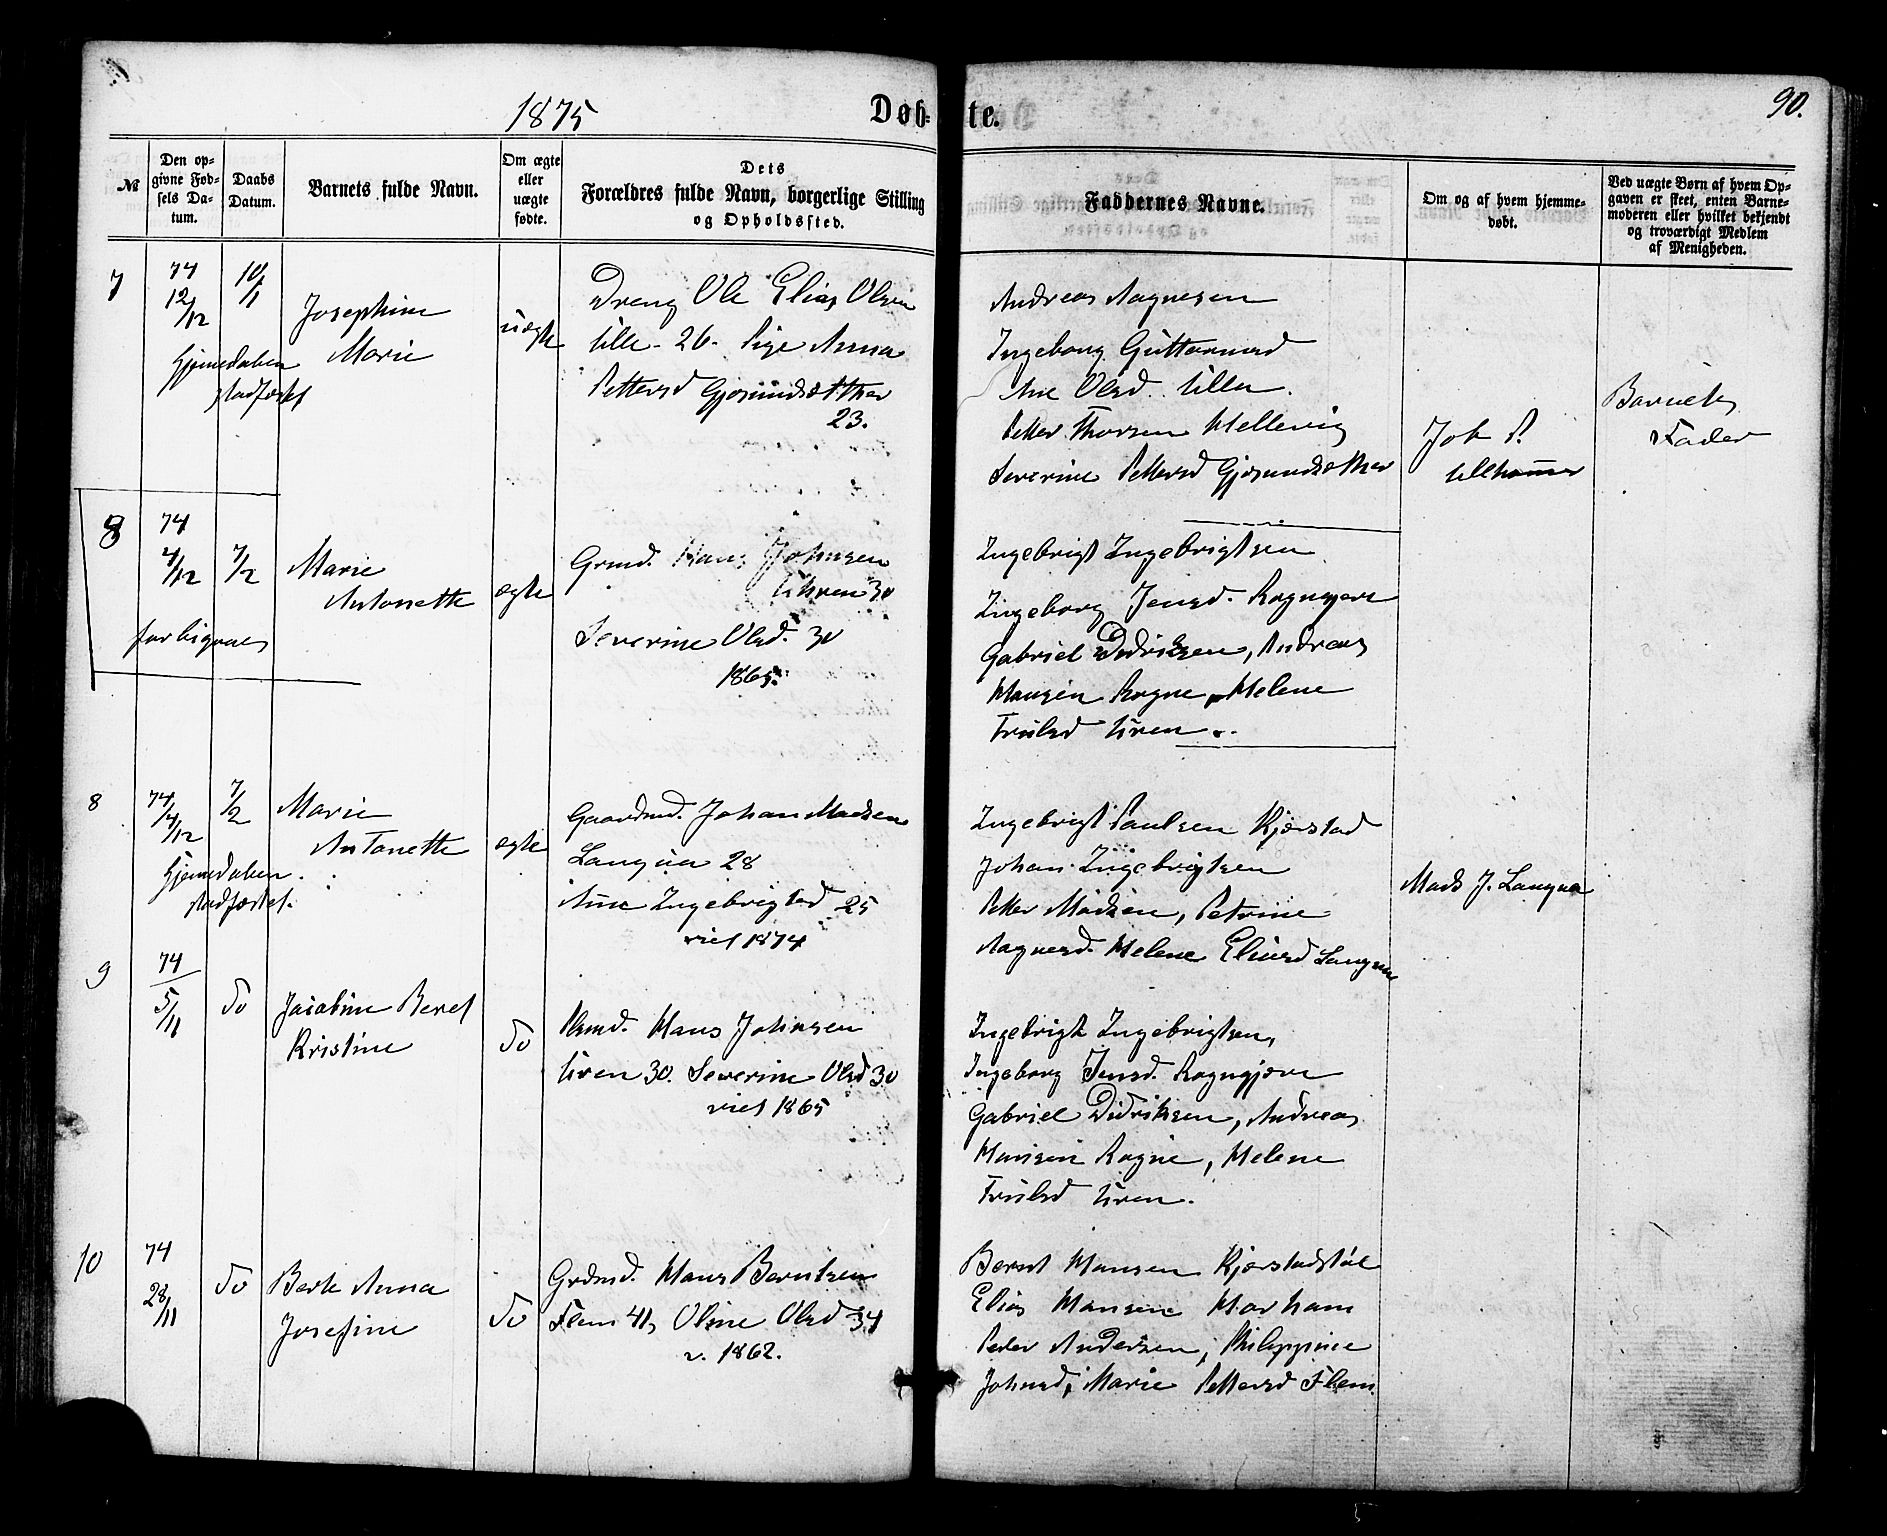 1875
Døb-te.
90.
№
Den op-
givne Fød-
sels Da-
tum.
Daabs
Datum.
Barnets fulde Navn.
Om ægte
eller
uægte
fødte.
Dets
Forældres fulde Navn, borgerlige Stilling
og Opholdssted.
Faddernes Navne.
Om og af hvem hjemme-
døbt.
Ved uægte Børn af hvem Op-
gaven er skeet, enten Barne-
moderen eller hvilket bekjendt
og troværdigt Medlem
af Menigheden.
7
74
12/12
10/1
Josephine
Marie
Hjemedaaben
stadfæstet
uægte
Dreng Ole Elias Olsen
Ulle - 26 - Pige Anna
Pettersd Gjøsundsæther
23.
Andreas Aagnesen
Ingeborg Guttormsd
Ane Olsd. Ulla.
Petter Thorsen Hellevig
Severine Pettersd Gjøsundsæther
Job P.
Ullhammer
Barnets
Fader
8
74
4/12
7/2
Marie
Antonette
forbigaaes
ægte
Grmd. Hans Johnsen
Uhren 30
Severine Olsd. 30
1865.
Ingebrigt Ingebrigtsen
Ingeborg Jensd. Rogngjere
Gabriel Didriksen, Andreas
Hansen Rogne, Helene
Trulsd Uren.
8
74
4/12
7/2
Marie
Antonette
Hjemedaaben.
stadfæstet.
ægte
Gaardmd. Johan Madsen
Langva 28
Ane Ingebrigtsd 25
viet 1874
Ingebrigt Paulsen Kjerstad
Johan Ingebrigtsen
Petter Madsen, Petrine
Aagnesd. Helene Eliasd Langva
Mads J. Langva
9
74
5/11
do
Jacobine Beret
Kristine
do
Plmd. Hans Johnsen
Uren 30. Severine Olsd 30
viet 1865
Ingebrigt Ingebrigtsen,
Ingeborg Jensd. Rogngjære
Gabriel Didriksen, Andreas
Hansen Rogne, Helene
Trulsd Uren.
10
74
28/11
do
Berte Anna
Josefine
do
Grdmd. Hans Berntsen
Flem 41, Oline Olsd 34
v. 1862.
Bernt Hansen Kjerstadstøl
Elias Hansen Harham
Peder Andersen, Philippine
Johnsd, Marie Pettersd Flem.